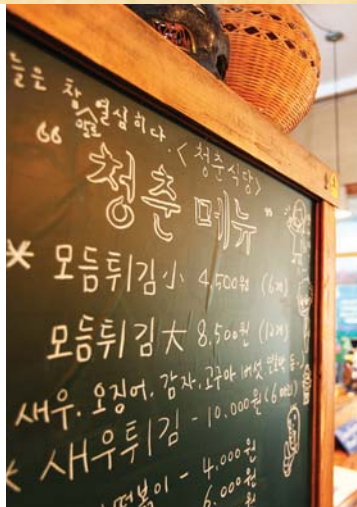 늘은 참 열심히다.
앞으로
<청춘식당>
“청춘 메뉴”
* 모듬튀김 小 4,500원 (6개)
모듬튀김 大 8,500원 (12개)
새우, 오징어, 감자, 고구마, 버섯, 연호박 등.
* 새우튀김 - 10,000원 (6마리)
떡볶이 - 4,000원
6,000원
원